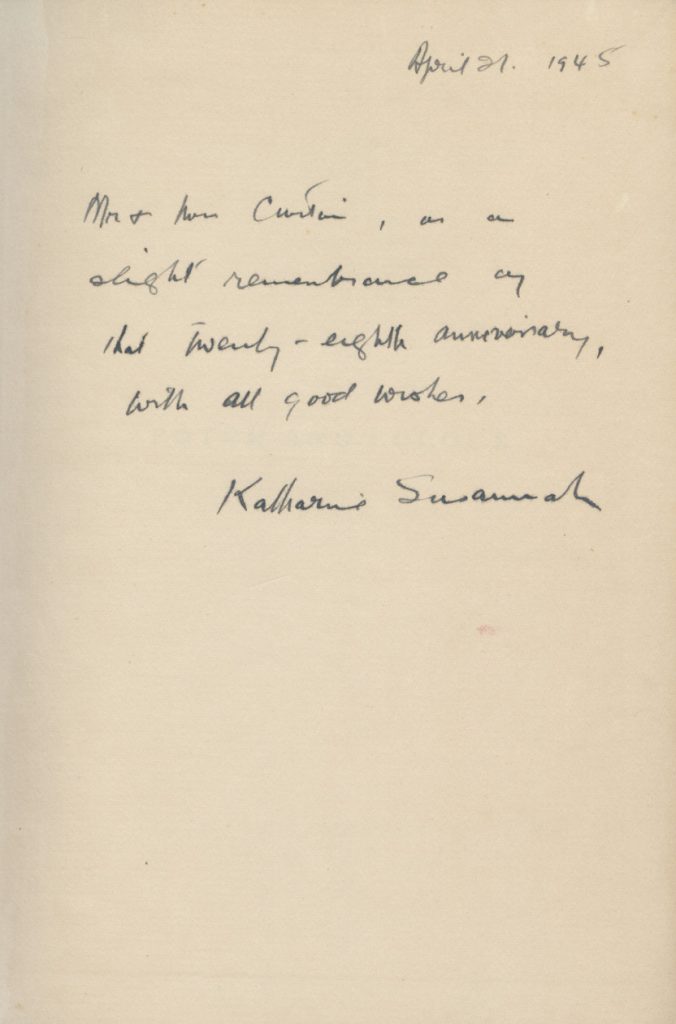 April 21. 1945
Mr & Mrs Curtin, as a
slight remembrance of
that twenty-eighth anniversary,
with all good wishes,
Katharine Susannah